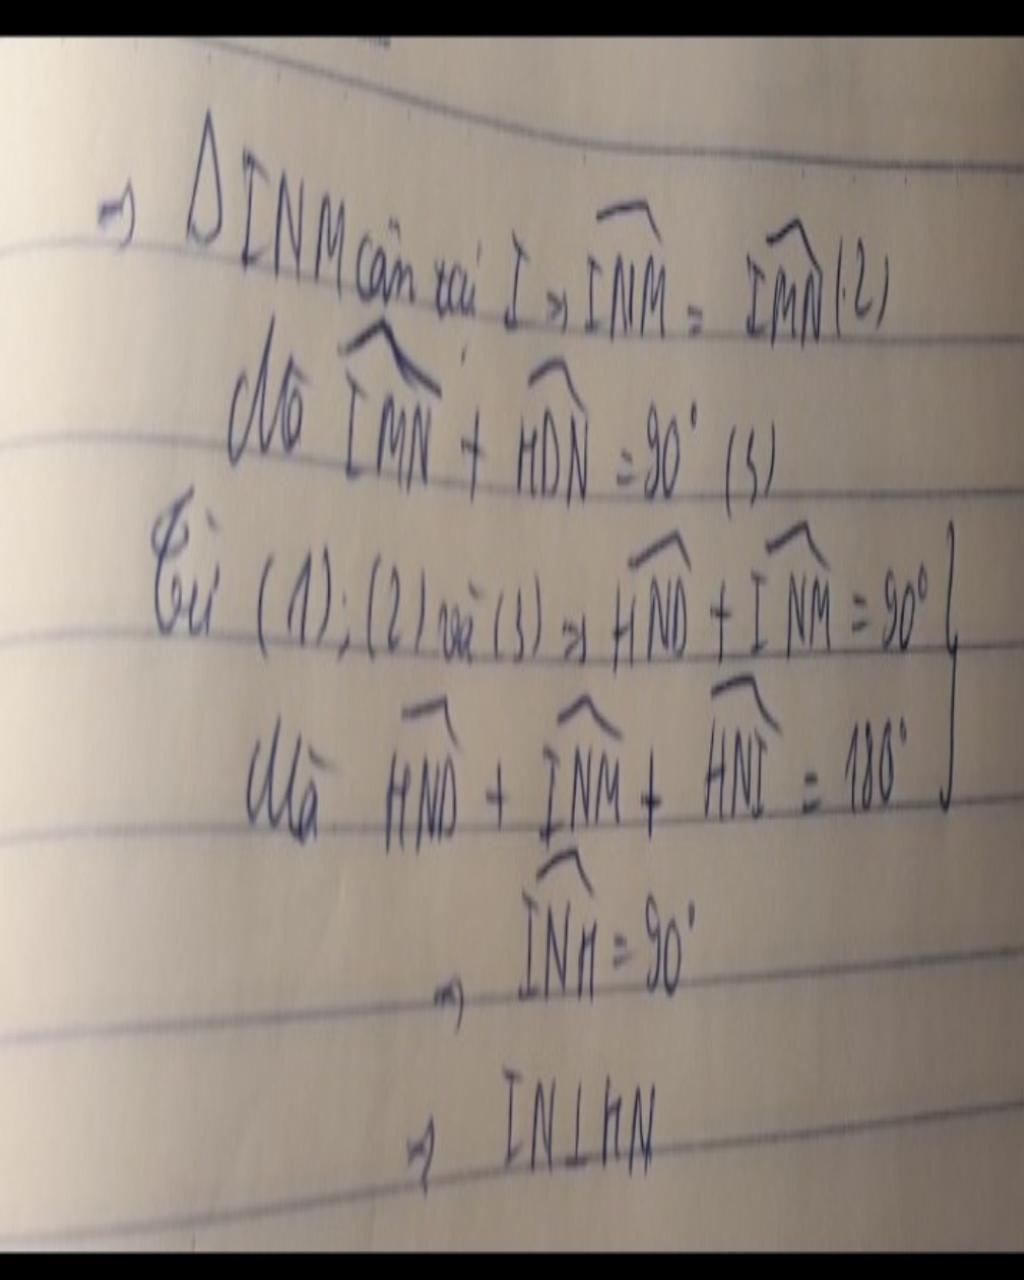 ⇒ ΔINM cân tại I ⇒ \widehat{INM} = \widehat{IMN} (2)
Mà \widehat{IMN} + \widehat{HDN} = 90° (3)
Từ (1); (2) và (3) ⇒ \widehat{HND} + \widehat{INM} = 90°
Mà \widehat{HND} + \widehat{INM} + \widehat{HNI} = 180°
⇒ \widehat{INH} = 90°
⇒ IN⊥HN